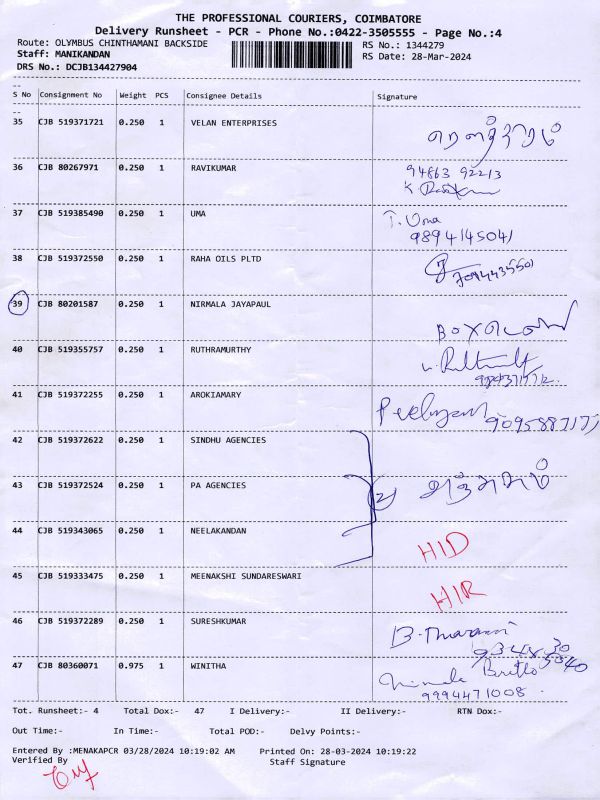 THE PROFESSIONAL COURIERS, COIMBATORE
Delivery Runsheet - PCR - Phone No.:0422-3505555 - Page No.:4
Route: OLYMBUS CHINTHAMANI BACKSIDE RS No.: 1344279
Staff: MANIKANDAN RS Date: 28-Mar-2024
DRS No.: DCJB134427904
S No Consignment No Weight PCS Consignee Details Signature
35 CJB 519371721 0.250 1 VELAN ENTERPRISES
36 CJB 80267971 0.250 1 RAVIKUMAR 94863 92213
37 CJB 519385490 0.250 1 UMA T. Uma
9894145041
38 CJB 519372550 0.250 1 RAHA OILS PLTD
39 CJB 80201587 0.250 1 NIRMALA JAYAPAUL
40 CJB 519355757 0.250 1 RUTHRAMURTHY
41 CJB 519372255 0.250 1 AROKIAMARY
42 CJB 519372622 0.250 1 SINDHU AGENCIES
43 CJB 519372524 0.250 1 PA AGENCIES
44 CJB 519343065 0.250 1 NEELAKANDAN HID
45 CJB 519333475 0.250 1 MEENAKSHI SUNDARESWARI HIR
46 CJB 519372289 0.250 1 SURESHKUMAR
47 CJB 80360071 0.975 1 WINITHA
9994471008
Tot. Runsheet:- 4 Total Dox:- 47 I Delivery:- II Delivery:- RTN Dox:-
Out Time:- In Time:- Total POD:- Delvy Points:-
Entered By :MENAKAPCR 03/28/2024 10:19:02 AM Printed On: 28-03-2024 10:19:22
Verified By Staff Signature